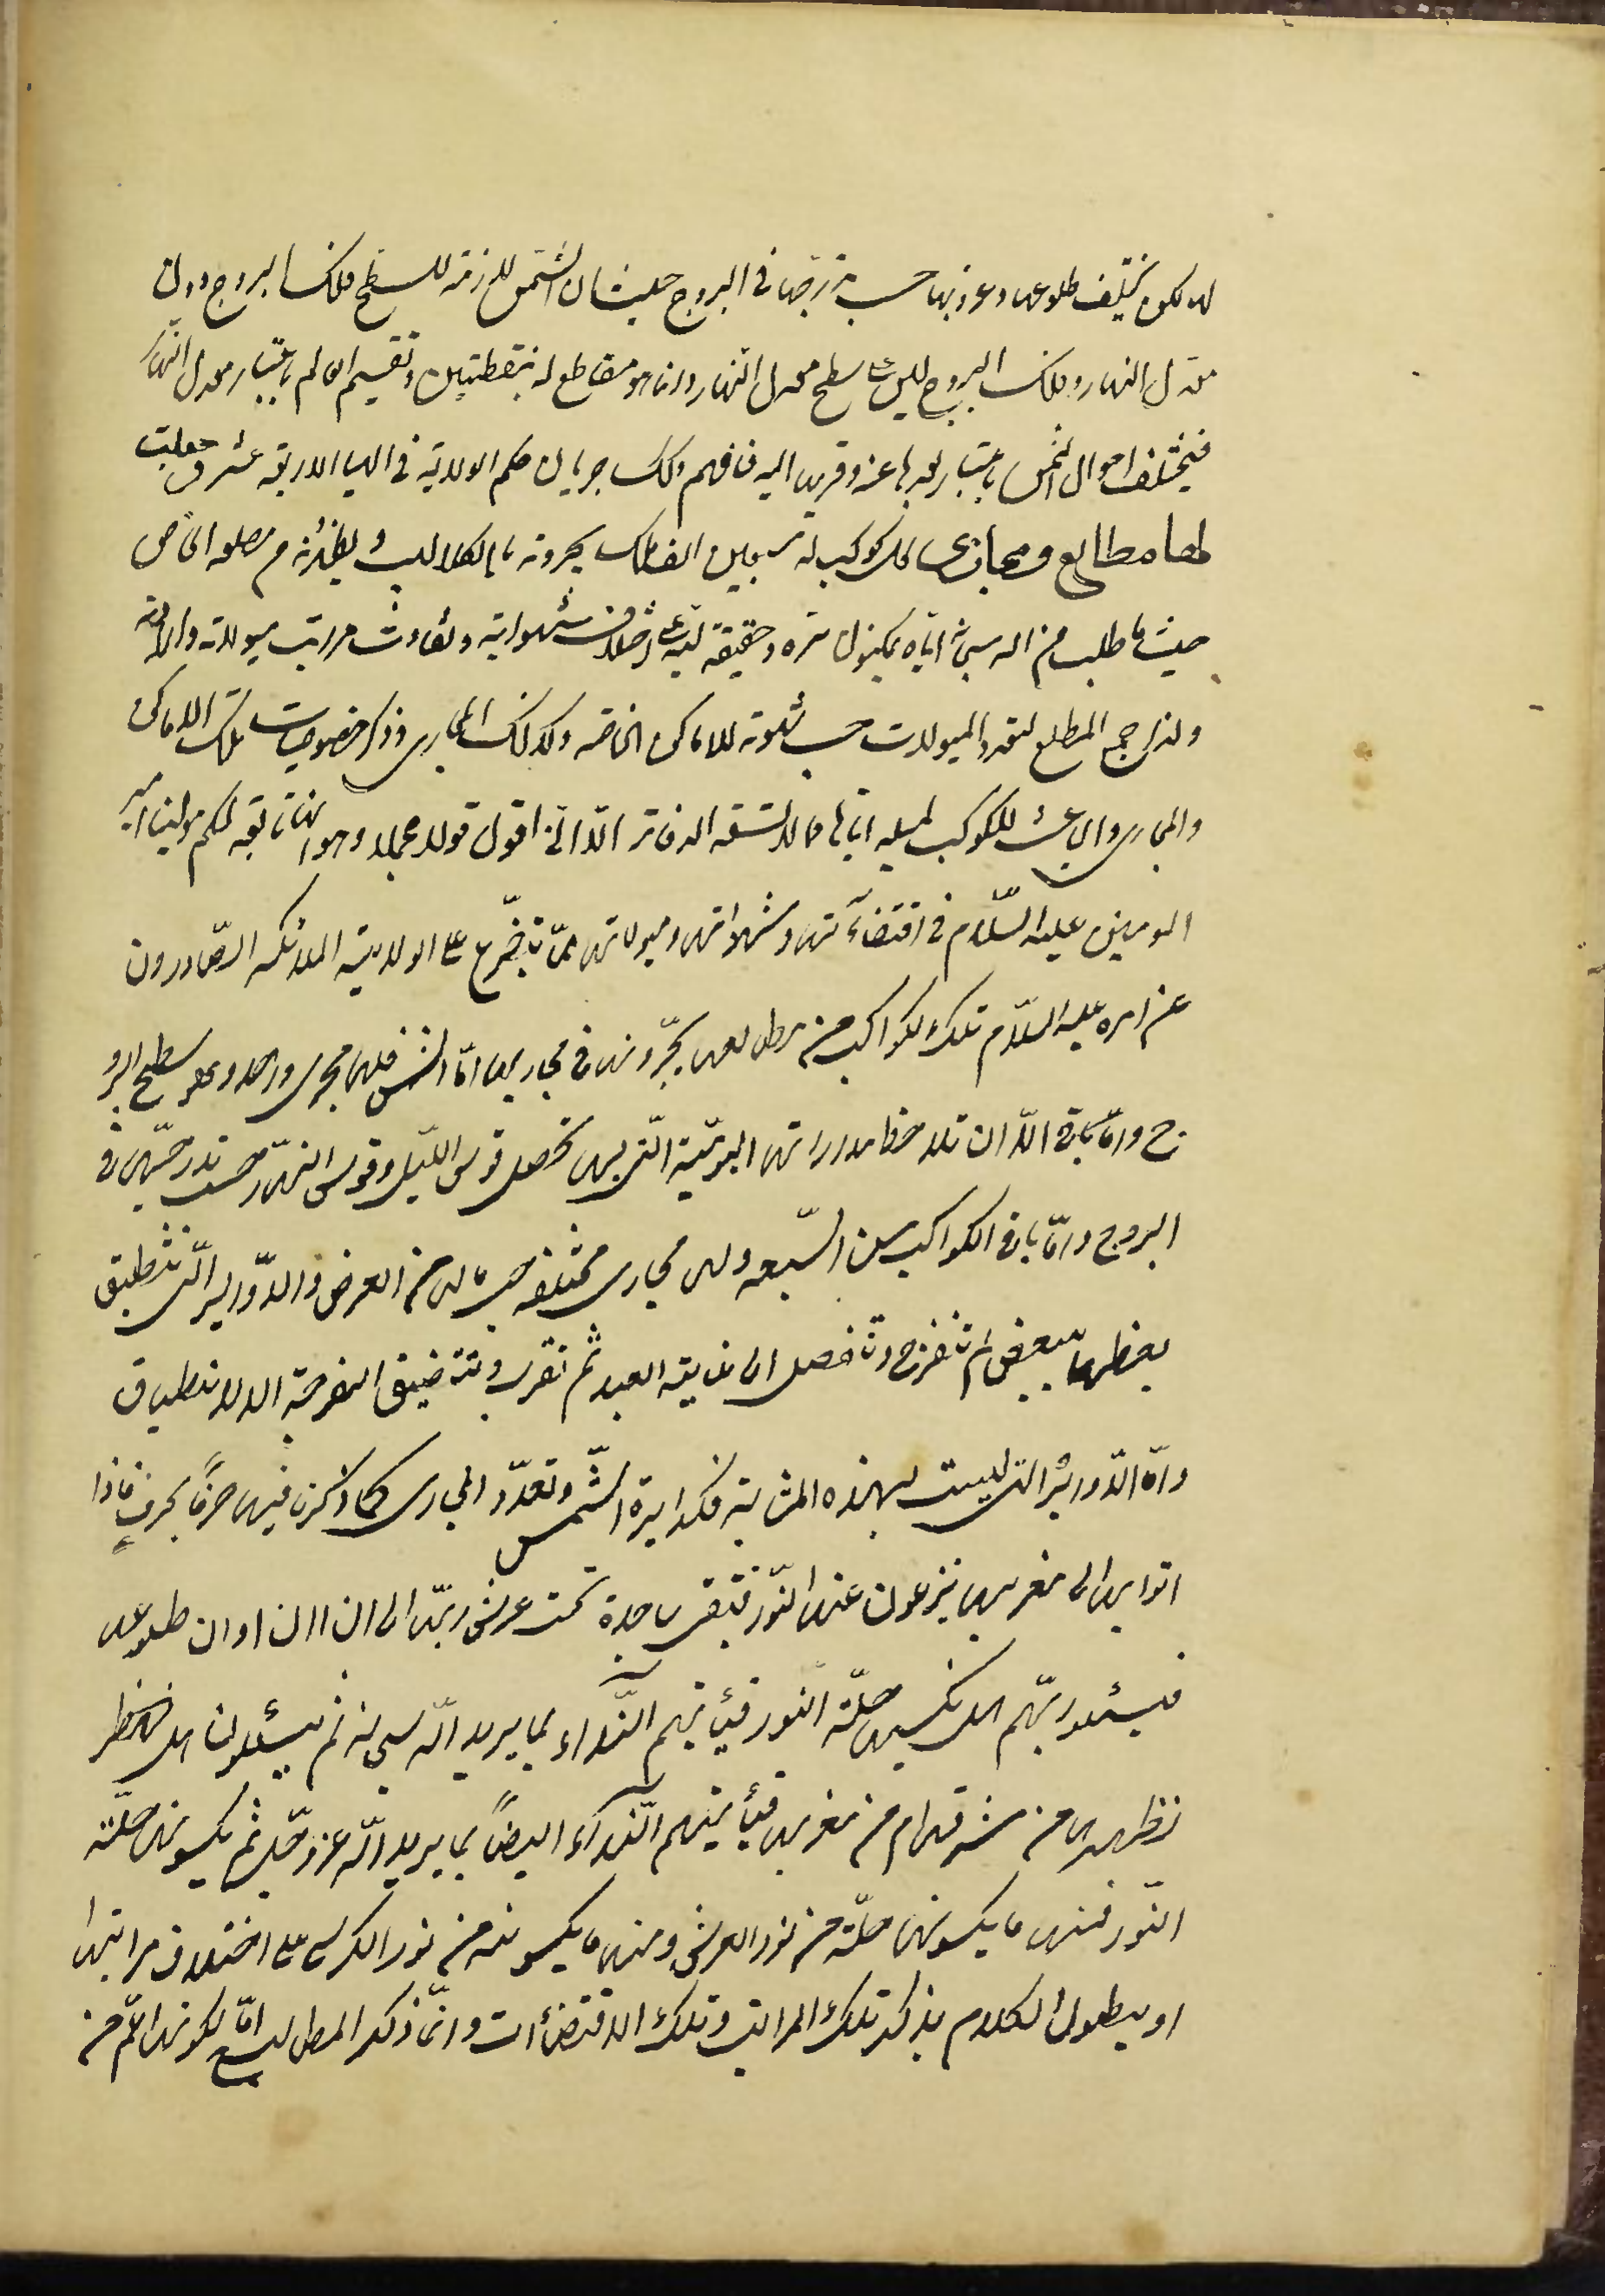 لها لكن يختلف طلوعها وغروبها حسب تدرجها في البروج حيث ان الشمس ملازمة لسطح فلك البروج دون
معدل النهار وفلك البروج ليس على سطح معدل النهار وانما هو مقاطع له بنقطتين وتقسيم العالم باعتبار معدل النهار
فيختلف احوال الشمس باعتبار بعدها عنه وقربها اليه فافهم ولك جريان حكم الولاية في الهياكل الاربعة عشر وجعلت
لها مطالع ومجاري لكل كوكب له سبعين الف ملك يجرونه بالكلاليب ويظهرونه من مطلعه الخاص
حيث ما طلب من الله سبحانه اياه بكينونة سره وحقيقة ليته على اختلاف شهواته وتفاوت مراتب ميولاته وارادته
ولذا جمع المطلع لتعدد الميولات حسب للاماكن الخاصة وكذلك المجاري وذكر خصوصيات تلك الاماكن
والمجاري والباعث للكوكب لميله اياها مما لا تسعه الدفاتر الا اني اقول قولا مجملا وهو انها تابعة لحكم مولينا امير
المومنين عليه السلام في اقتضاآتها وشهواتها وميولاتها مما يتفرع على الولاية الملائكة الصادرون
عن امره عليه السلام تلك الكواكب من مطالعها يجرونها في مجاريها اما الشمس فلها مجرى واحد وهو سطح البرو
ج واما باقي الا ان تلاحظ مداراتها اليومية التي بها تحصل قوس الليل وقوس النهار حسب تدرجها في
البروج واما باقي الكواكب من السبعة ولها مجاري مختلفة حسب ما لها من العرض والدواير التي تنطبق
بعضها ببعض ثم تنفرج وتنفصل الى غاية البعد ثم تقرب وتتضيق الفرجة الى الانطباق
واما الدواير التي ليست بهذه المثابة فكدايرة الشمس وتعدد المجاري كما ذكرنا فيها حرفا بحرف فاذا
اتوا بها الى مغربها ينزعون عنها النور فتبقى ساجدة تحت عرش ربها الى ان اوان طلوعها
فيسئلون ربهم هل نكسيها حلة النور فيأتيهم النداء بما يريد الله سبحانه ثم يسئلون هل
نظهرها من مشرقها ام من مغربها فيأتيهم النداء ايضاً بما يريد الله عز وجل ثم يكسونها حلة
النور فمنها ما يكسونها حلة من نور العرش ومنها ما يكسونه من نور الكرسي على اختلاف مراتبها
او يطول الكلام بذكر تلك المراتب وتلك الاقتضاءات وانما ذكر المطالع اما لكونها اتم من